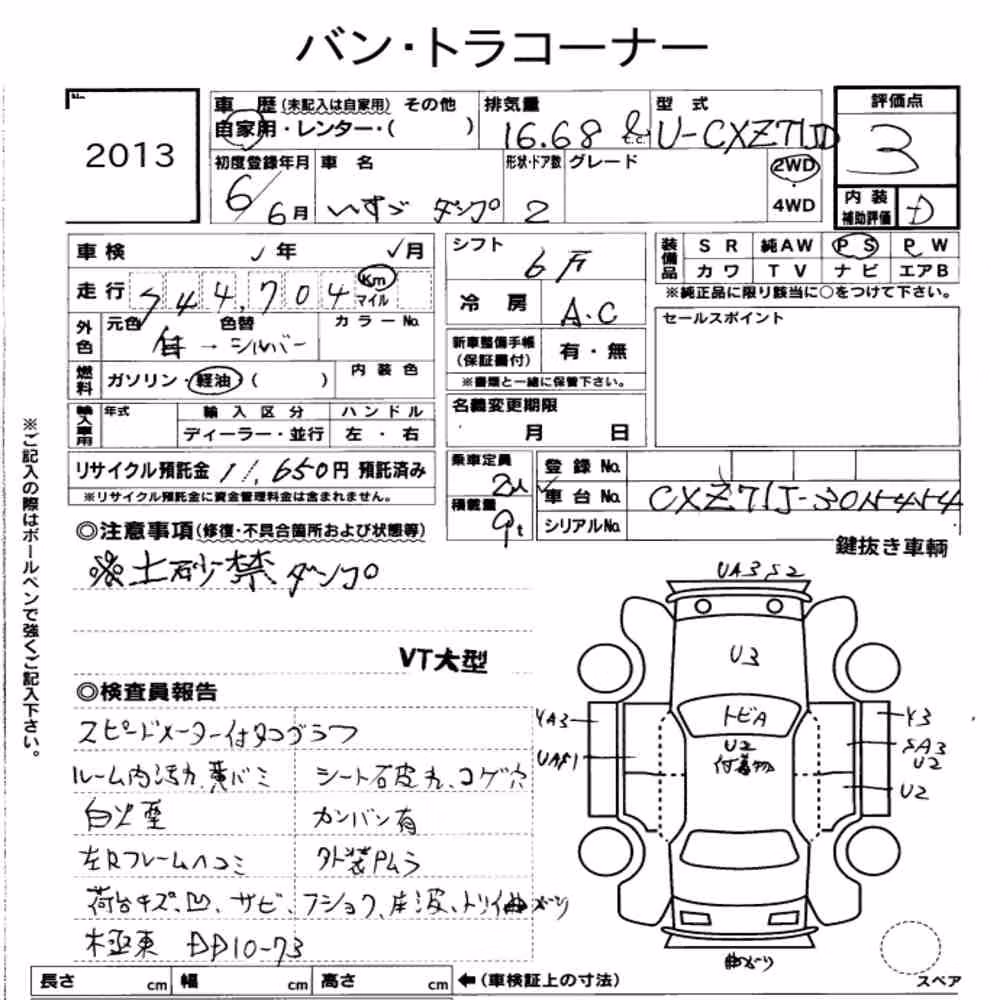 バン・トラコーナー
2013
車 歴 (未記入は自家用) その他
自家用・レンター・( )
排気量
16.68 ℓ c.c.
型 式
U-CXZ71JD
評価点
3
初度登録年月
6/6月
車 名
いすゞ ダンプ
形状・ドア数
2
グレード
2WD
4WD
内 装
補助評価
D
車 検 年 月
走 行 544,704 Km マイル
外色
元色 色替
白 → シルバー
カラーNo.
燃料
ガソリン・軽油・( )
内 装 色
輸入車用
年式
輸 入 区 分
ディーラー・並行
ハ ン ド ル
左 ・ 右
リサイクル預託金 11,650円 預託済み
※リサイクル預託金に資金管理料金は含まれません。
シフト
6F
冷 房
A・C
新車整備手帳
(保証書付)
有・無
※書類と一緒に保管下さい。
名義変更期限
月 日
装備品
S R 純AW P S P W
カ ワ T V ナ ビ エアB
※純正品に限り該当に○をつけて下さい。
セールスポイント
乗車定員
2人
積載量
9t
登 録 No.
車 台 No.
CXZ71J-3015454
シリアルNo.
鍵抜き車輌
※ご記入の際はボールペンで強くご記入下さい。
◎注意事項(修復・不具合箇所および状態等)
※土砂禁ダンプ
VT大型
◎検査員報告
スピードメーター付タコグラフ
ルーム内汚れ、黄バミ
シート石皮れ、コゲ穴
白火煙
カンバン有
左Rフレームヘコミ
外装Pムラ
荷台キズ、凹、サビ、フショク
極東 DD10-73
UA3 S2
U3
トビA
U2
YA3
Y3
SA3
U2
U2
スペア
長さ cm 幅 cm 高さ cm ←(車検証上の寸法)